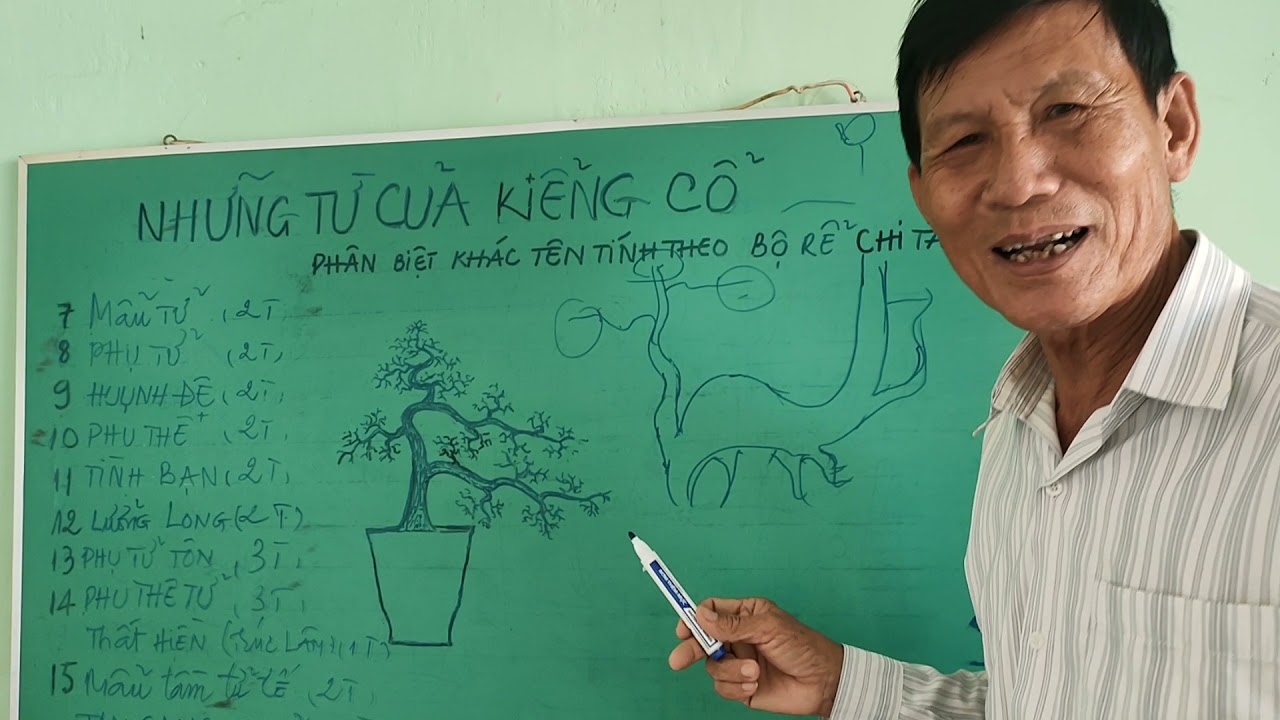 NHỮNG TỪ CỦA KIỂNG CỔ
PHÂN BIỆT KHÁC TÊN TÍNH THEO BỘ RỄ CHI TA
7 Mẫu Tử (2T)
8 PHỤ TỬ (2T)
9 HUỲNH ĐỆ (2T)
10 PHU THÊ (2T)
11 TÌNH BẠN (2T)
12 LƯỠNG LONG (2T)
13 PHỤ TỬ TÔN (3T)
14 PHU THÊ TỬ (3T)
Thất HIỀN (TRÚC LÂM)
15 Mẫu tầm tử (2T)